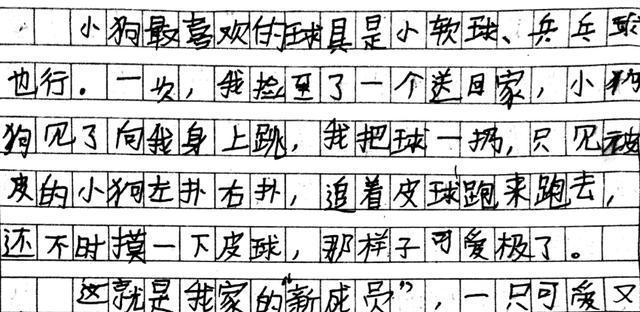 小狗最喜欢的球具是小软球、乒乓球
也行。一次,我捡到了一个送回家,小狗
狗见了向我身上跳,我把球一扔,只见被
皮的小狗左扑右扑,追着皮球跑来跑去,
还不时摸一下皮球,那样子可爱极了。
这就是我家的“新成员”,一只可爱又